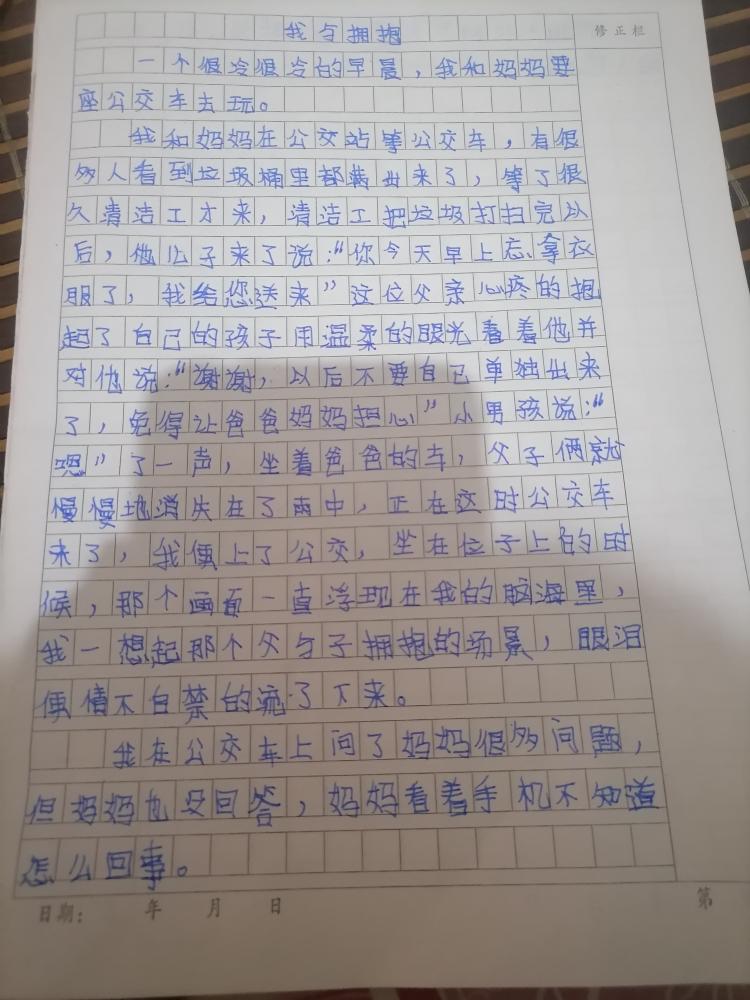 我与拥抱
修正栏
一个很冷很冷的早晨，我和妈妈要
座公交车去玩。
我和妈妈在公交站等公交车，有很
多人看到垃圾桶里都满出来了，等了很
久清洁工才来，清洁工把垃圾打扫完以
后，他儿子来了说：“你今天早上忘拿衣
服了，我给您送来”这位父亲心疼的抱
起了自己的孩子用温柔的眼光看着他并
对他说：“谢谢，以后不要自己单独出来
了，免得让爸爸妈妈担心”小男孩说：“
嗯”了一声，坐着爸爸的车，父子俩就
慢慢地消失在了雨中，正在这时公交车
来了，我便上了公交，坐在位子上的时
候，那个画面一直浮现在我的脑海里，
我一想起那个父与子拥抱的场景，眼泪
便情不自禁的流了下来。
我在公交车上问了妈妈很多问题，
但妈妈也没回答，妈妈看着手机不知道
怎么回事。
日期： 年 月 日
第